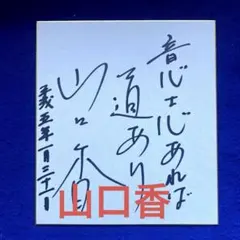 意志あれば
道あり
山口香
平成五年一月三十一日
山口香